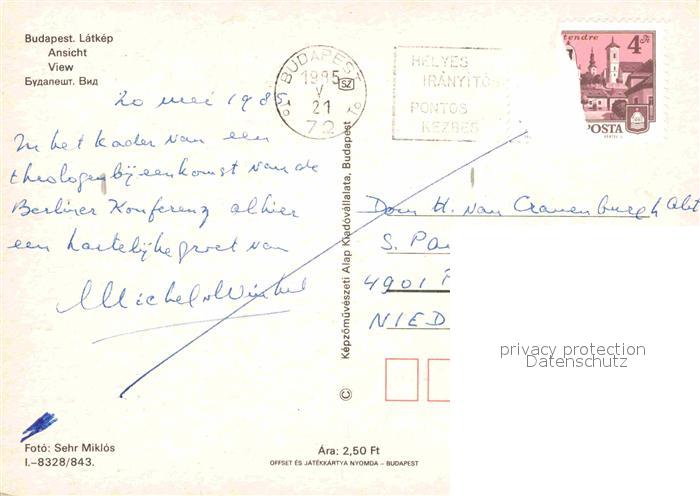 Budapest. Látkép
Ansicht
View
Будапешт. Вид
BUDAPEST
1985
V
21
72
SZ
HELYES
IRÁNYÍTÓS
PONTOS
KÉZBES
tendre
4 Ft
POSTA
20 mei 1985
In het kader van een
theologenbijeenkomst van de
Berliner Konferenz alhier
een hartelijke groet van
Michel v Winkel
Dom H. van Cranenburgh Abt
S. Pa
4901
NIED
privacy protection
Datenschutz
© Képzőművészeti Alap Kiadóvállalata, Budapest
Fotó: Sehr Miklós
I.–8328/843.
Ára: 2,50 Ft
OFFSET ÉS JÁTÉKKÁRTYA NYOMDA – BUDAPEST